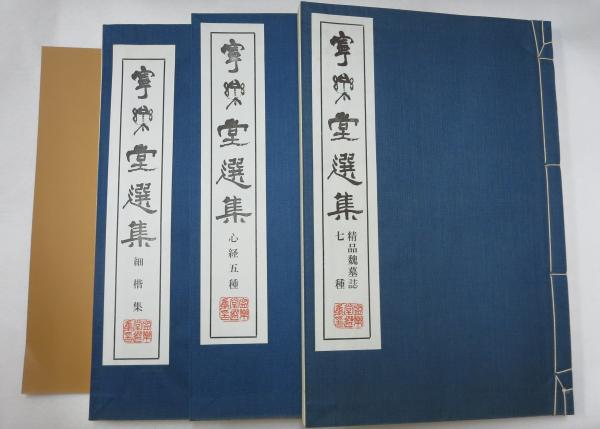 寧樂堂選集
細楷集
寧樂堂選集
心経五種
寧樂堂選集
精品魏墓誌
七種